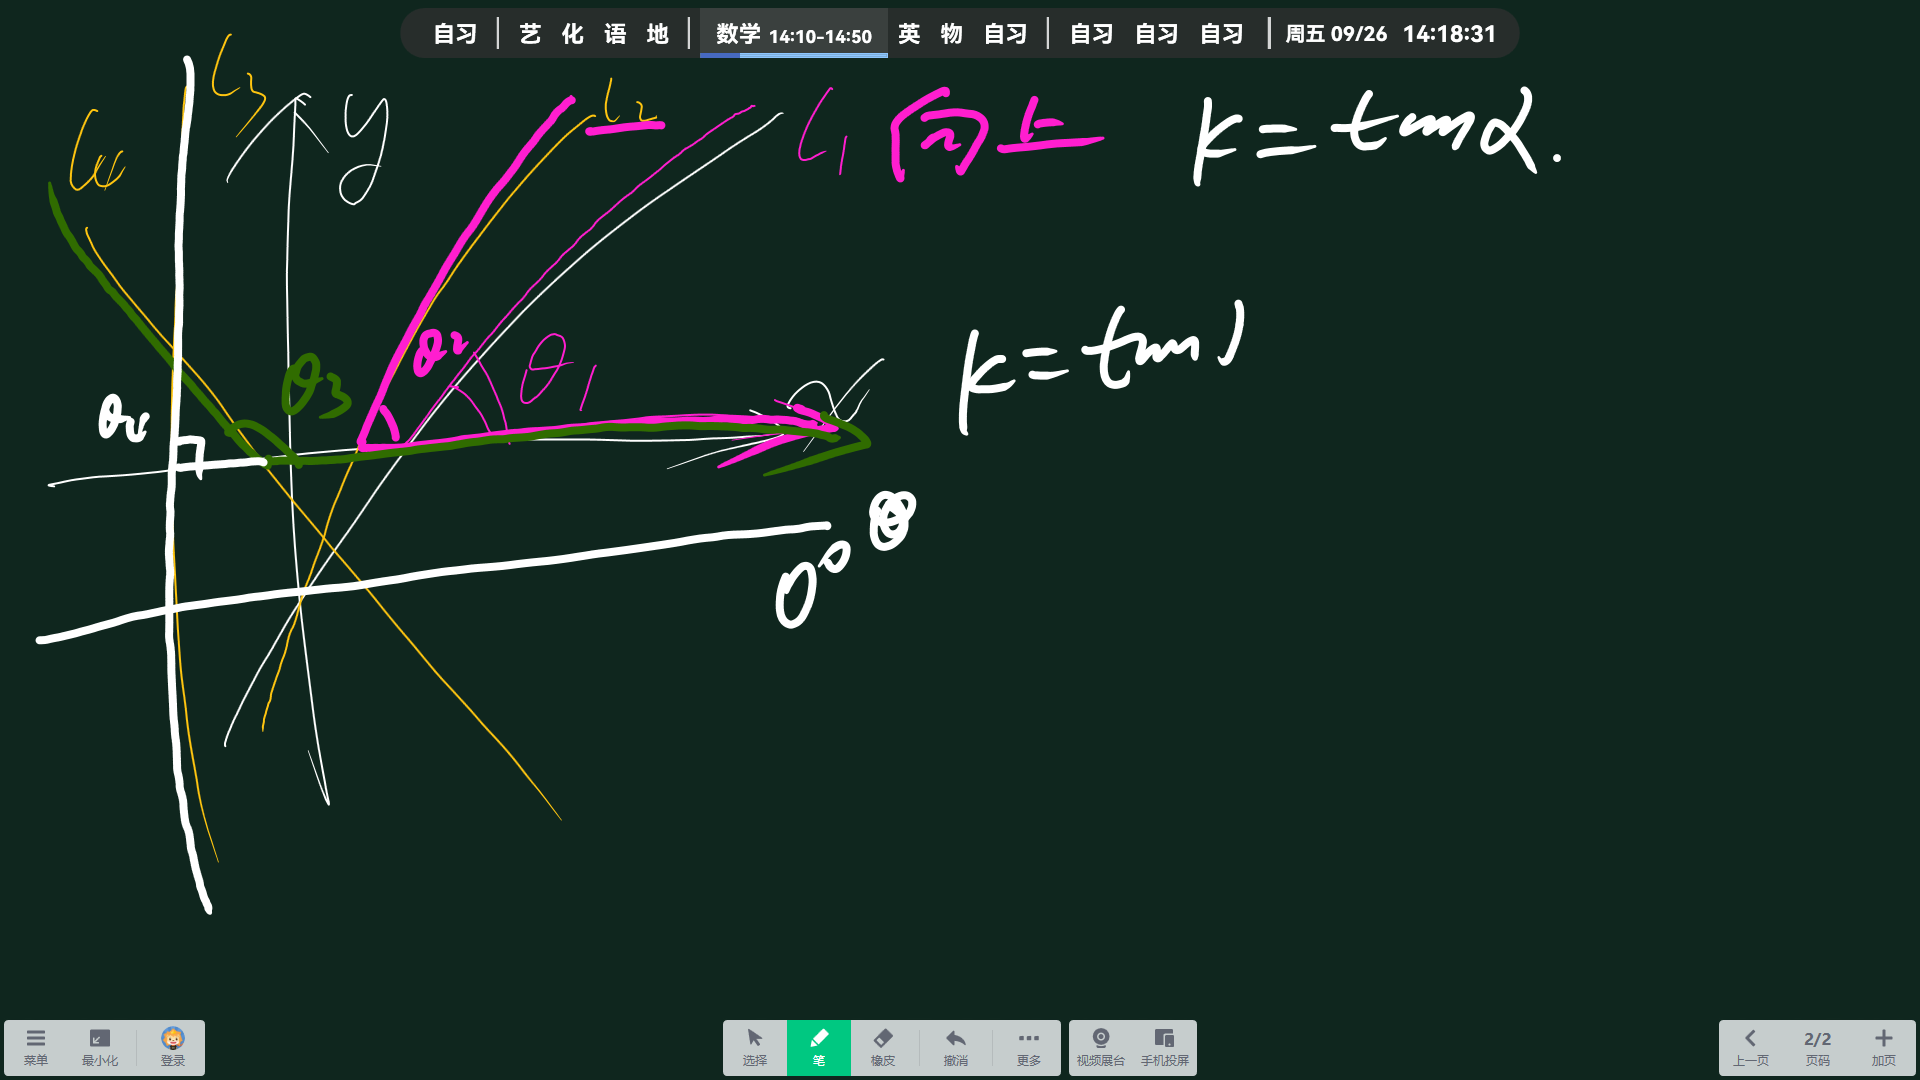 自习 | 艺 化 语 地 | 数学 14:10-14:50 英 物 自习 | 自习 自习 自习 | 周五 09/26 14:18:31
l3 y l4 l2 l1 向上 k=tanα.
θ2 θ1 θ3 x k=tan
θ4
0° θ
菜单 最小化 登录 选择 笔 橡皮 撤消 更多 视频展台 手机投屏 上一页 2/2 页码 加页